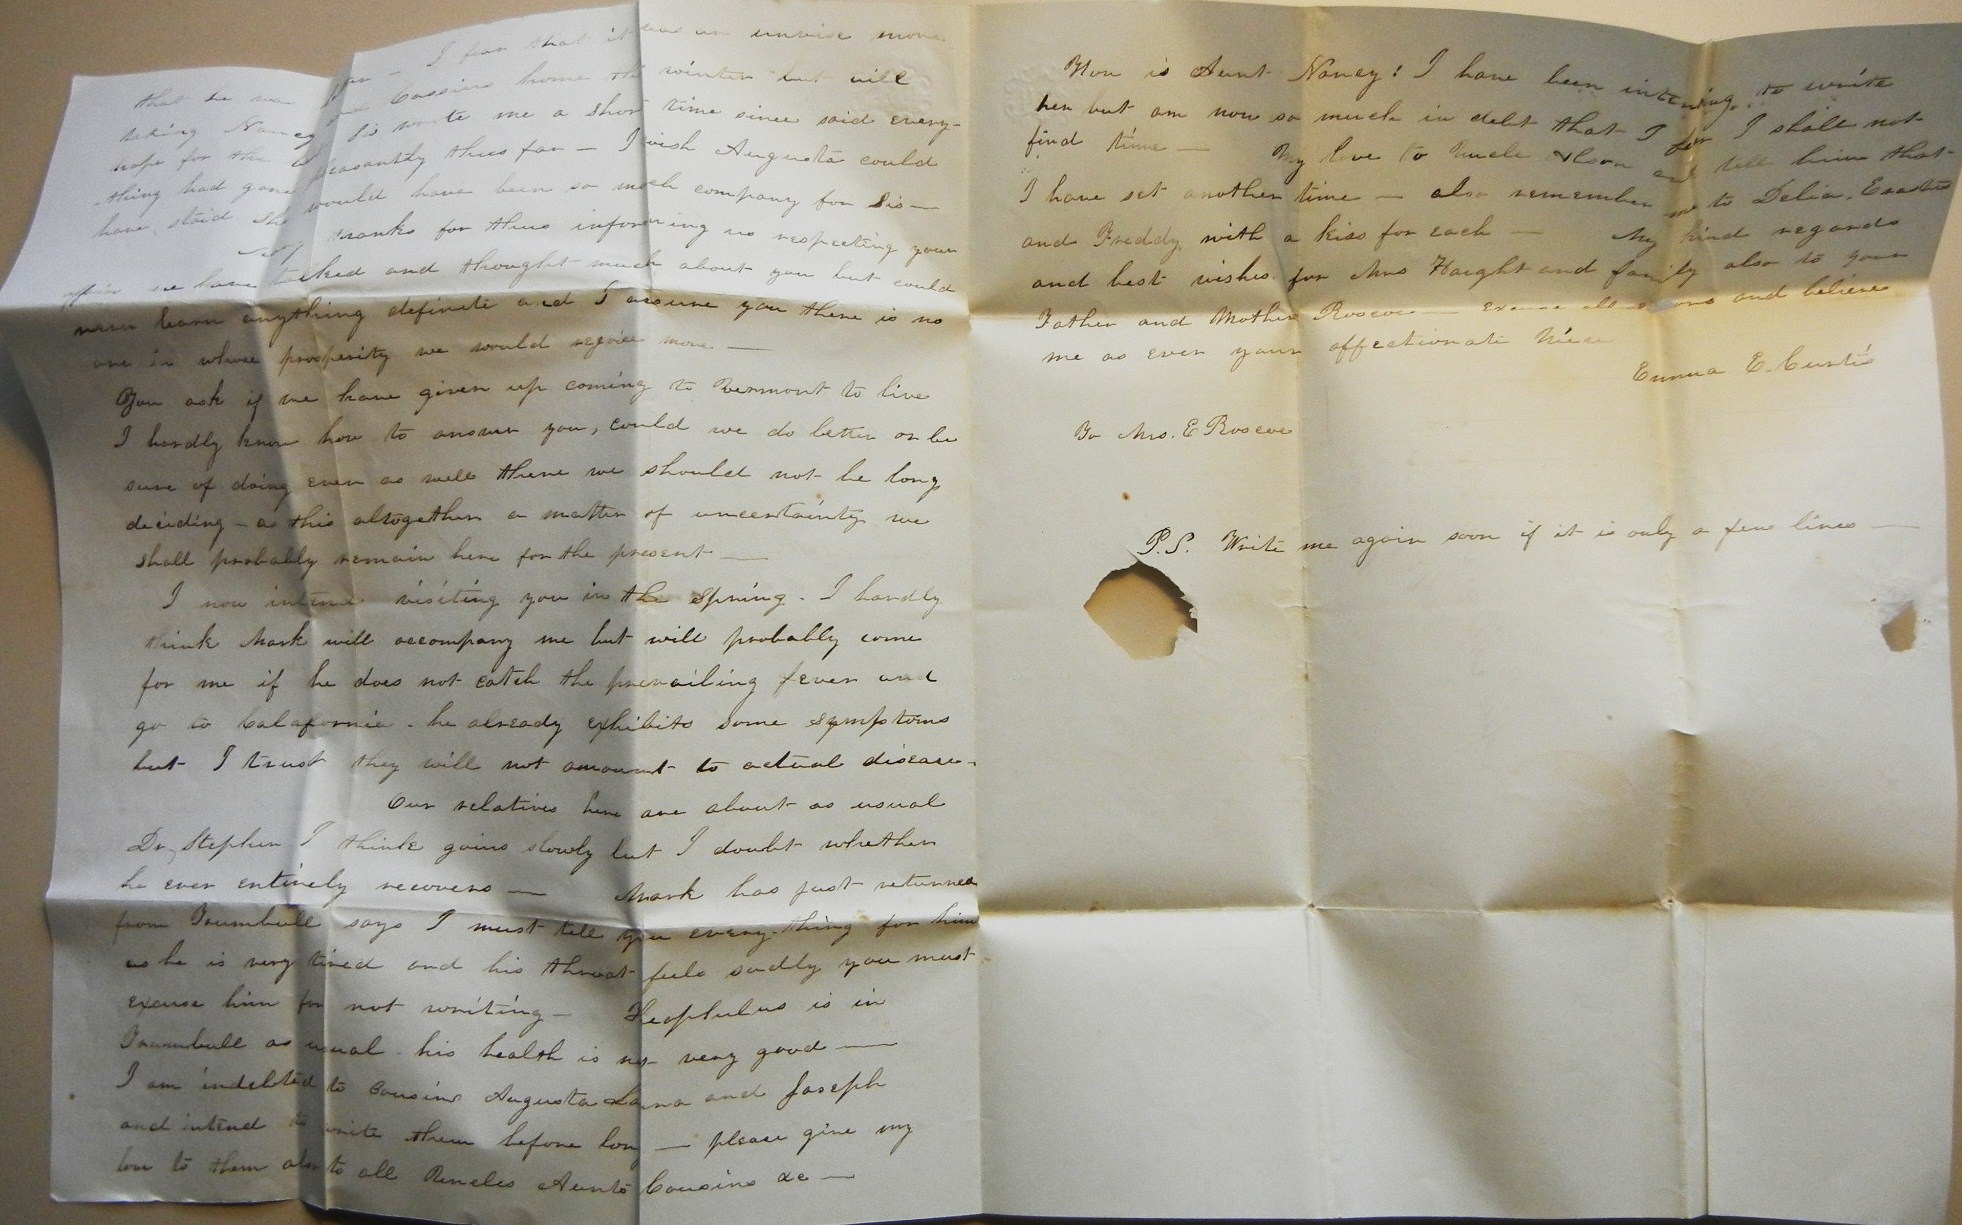 that he was I fear that it was an unwise move
taking Nancy and Cassius home the winter but will
hope for the Sis wrote me a short time since said every-
-thing had gone pleasantly thus far — I wish Augusta could
have staid she would have been so much company for Sis —
thanks for thus informing us respecting your
we have talked and thought much about you but could
never learn anything definite and I assure you there is no
one in whose prosperity we would rejoice more. —
You ask if we have given up coming to Vermont to live
I hardly know how to answer you, could we do better or be
sure of doing even as well there we should not be long
deciding – as this altogether a matter of uncertainty we
shall probably remain here for the present —
I now intend visiting you in the Spring. I hardly
think Mark will accompany me but will probably come
for me if he does not catch the prevailing fever and
go to Calafornia. he already exhibits some symptoms
but I trust they will not amount to actual disease.
Our relatives here are about as usual
Dr. Stephen I think gains slowly but I doubt whether
he ever entirely recovers — Mark has just returned
from Trumbull says I must tell you every-thing for him
as he is very tired and his throat feels sadly you must
excuse him for not writing — Theophulus is in
Trumbull as usual. his health is not very good —
I am indebted to Cousins Augusta and Joseph
and intend to write them before long — please give my
love to them also to all Uncles Aunts Cousins &c —
How is Aunt Nancy! I have been intending to write
her but am now so much in debt that I fear I shall not
find time — My love to Uncle and tell him that
I have set another time — also remember me to Delia,
and Freddy with a kiss for each — My kind regards
and best wishes for Mrs Haight and family also to your
Father and Mother Roscoe — Excuse all and believe
me as ever your affectionate Niece
Emma E. Curtis
To Mrs. E Roscoe
P.S. Write me again soon if it is only a few lines —